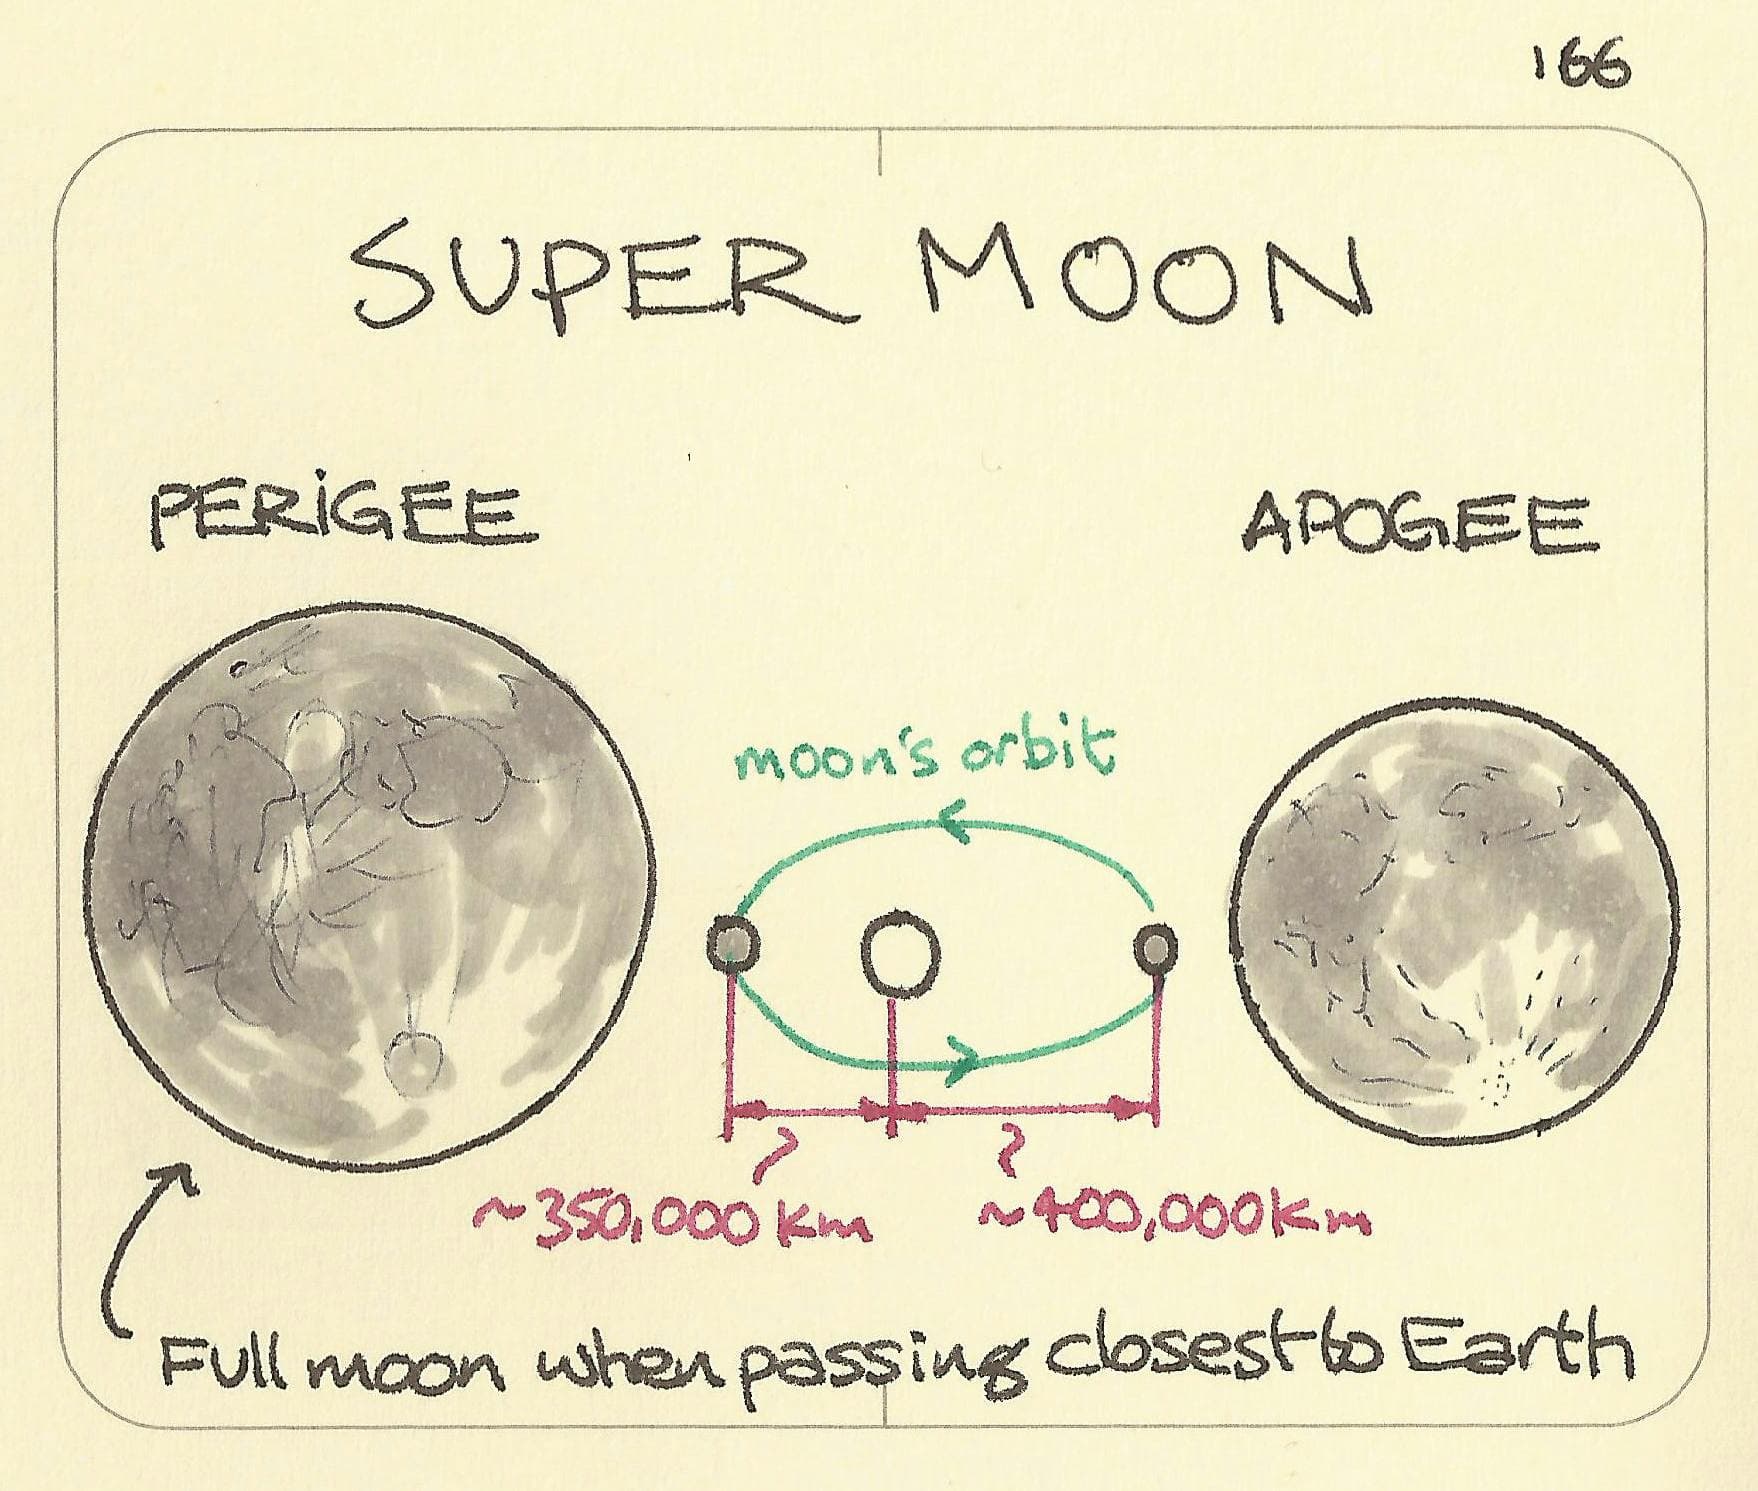 166
SUPER MOON
PERiGEE
APOGEE
moon's orbit
~350,000 km
~400,000 km
Full moon when passing closest to Earth